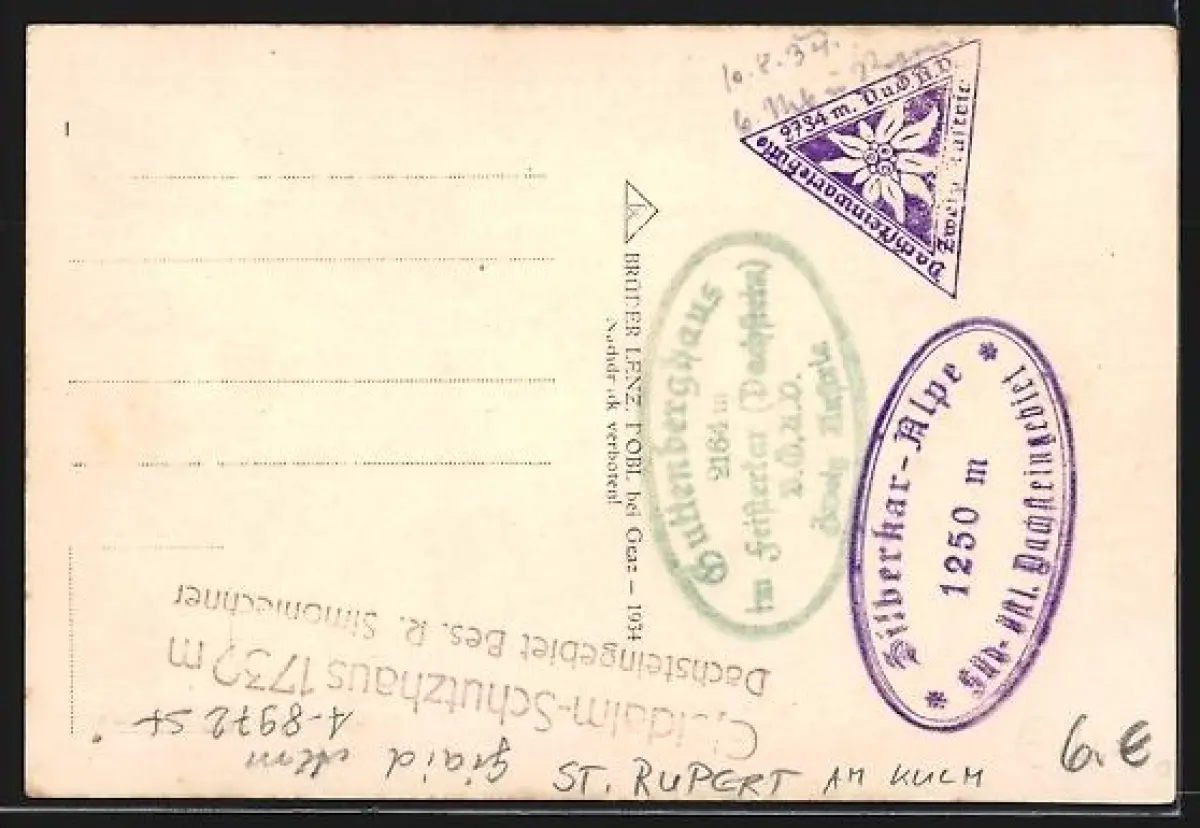 10.8.34.
2734 m. D.u.Ö.A.V.
Dachsteinwarte­hütte
Zweig Austria
BRÜDER LENZ, DOBL bei Graz – 1934
Nachdruck verboten!
Guttenberghaus
2164 m
Im Feisterkar (Dachstein)
D.Ö.A.V.
Zweig Austria
Silberkar-Alpe
1250 m
Süd-östl. Dachsteingebiet
Gjaidalm-Schutzhaus 1739 m
Dachsteingebiet Bes. R. Simonlechner
A-8972 St
gjaid alm
ST. RUPERT AM KULM
6.€